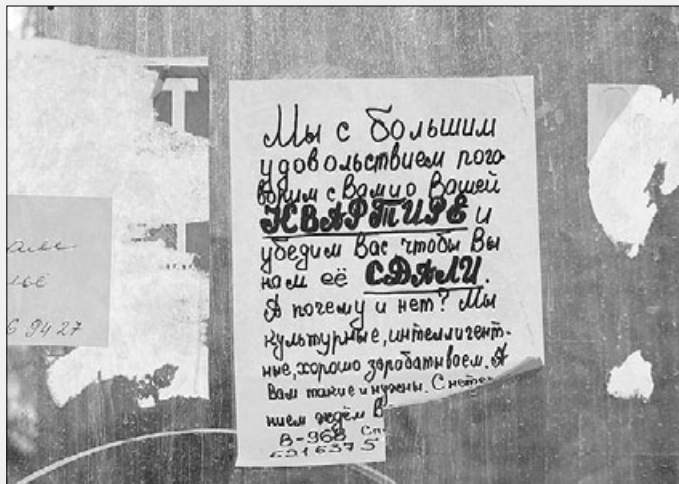 Т
Мы с большим
удовольствием пого
ворим с Вами о Вашей
КВАРТИРЕ и
убедим Вас чтобы Вы
нам её СДАЛИ.
А почему и нет? Мы
культурные, интеллигент-
ные, хорошо зарабатываем. А
Вам такие и нужны. С нетер
нием ждём В
8-968
6 94 27